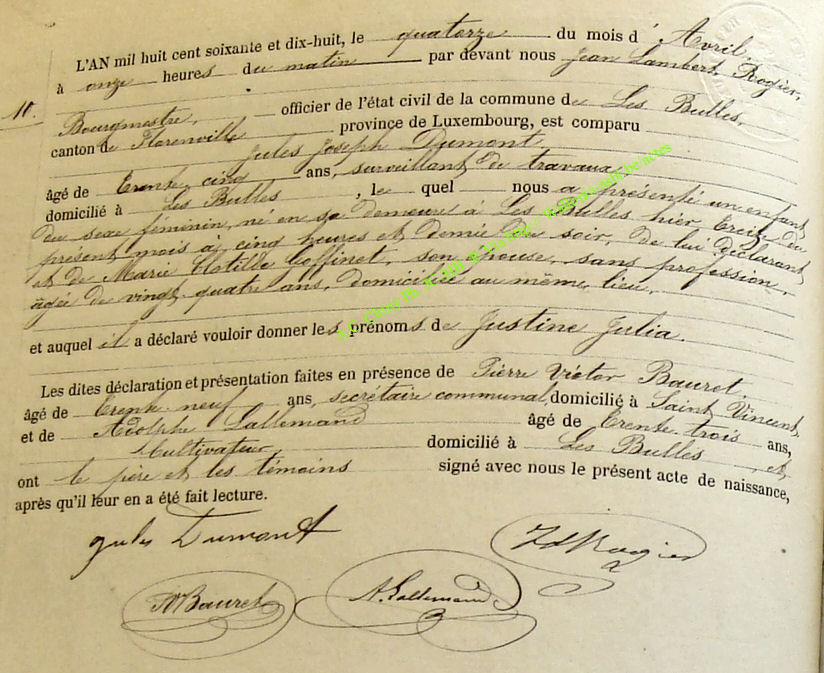 L'AN mil huit cent soixante et dix-huit, le quatorze du mois d'Avril,
à onze heures du matin par devant nous Jean Lambert Rogier,
10.
Bourgmestre, officier de l'état civil de la commune de Les Bulles,
canton de Florenville province de Luxembourg, est comparu
Jules Joseph Dumont
âgé de trente cinq ans, surveillant de travaux
domicilié à Les Bulles, le quel nous a présenté un enfant
du sexe féminin, né en sa demeure à Les Bulles hier treize du
présent mois à cinq heures et demie du soir, de lui déclarant
et de Marie Clotilde Goffinet, son épouse, sans profession,
âgée de vingt quatre ans, domiciliée au même lieu,
et auquel il a déclaré vouloir donner les prénoms de Justine Julia.
Les dites déclaration et présentation faites en présence de Pierre Victor Bauret
âgé de trente neuf ans, secrétaire communal, domicilié à Saint Vincent
et de Adolphe Lallemand âgé de trente-trois ans,
Cultivateur domicilié à Les Bulles, et
ont le père et les témoins signé avec nous le présent acte de naissance,
après qu'il leur en a été fait lecture.
Jules Dumont
JLRogier
PVBauret A. Lallemand